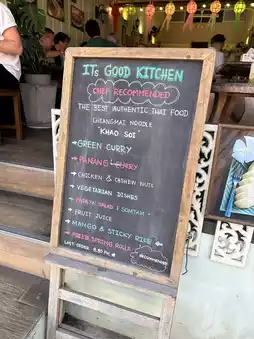 ITs GOOD KITCHEN
CHEF RECOMMENDED
THE BEST AUTHENTIC THAI FOOD
CHIANGMAI NOODLE
"KHAO SOI"
→ GREEN CURRY
→ PANANG CURRY
→ CHICKEN & CASHEW NUTS
→ VEGETARIAN DISHES
→ PAPAYA SALAD (SOMTAM)
→ FRUIT JUICE
→ MANGO & STICKY RICE
→ FRIED SPRING ROLLS
LAST ORDER 8.30 PM
RECOMMENDED